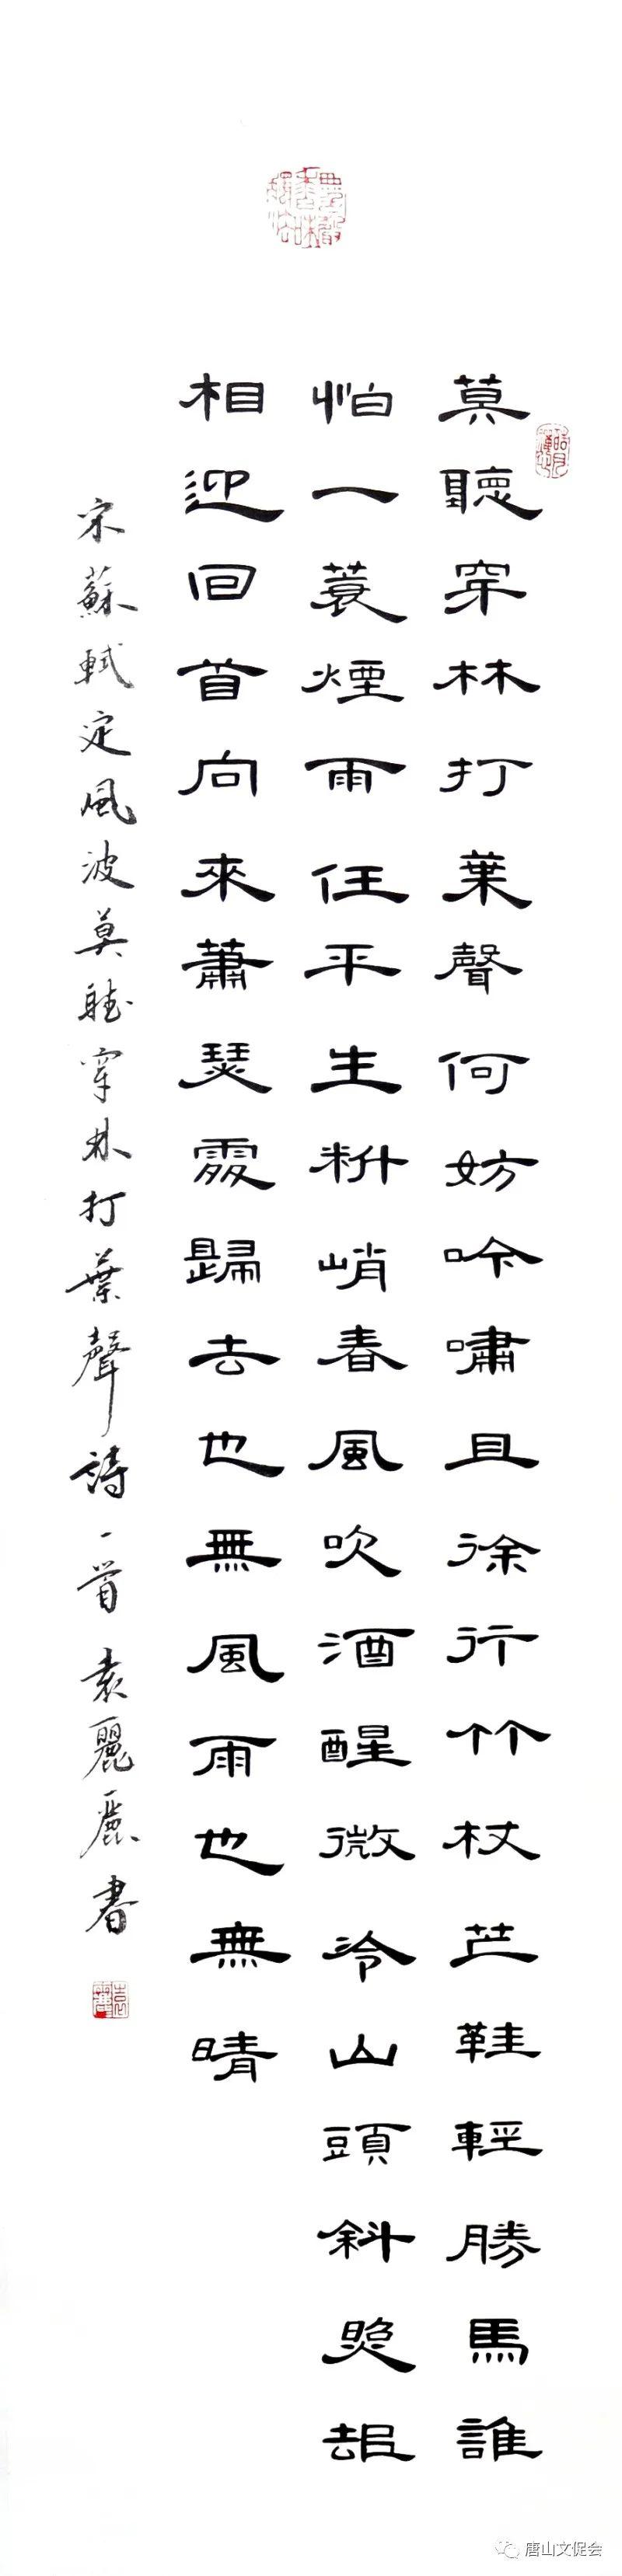 莫聽穿林打葉聲何妨吟嘯且徐行竹杖芒鞋輕勝馬誰
怕一蓑煙雨任平生料峭春風吹酒醒微冷山頭斜照却
相迎回首向來蕭瑟處歸去也無風雨也無晴
宋蘇軾定風波莫聽穿林打葉聲詩一首袁麗麗書
唐山文促会